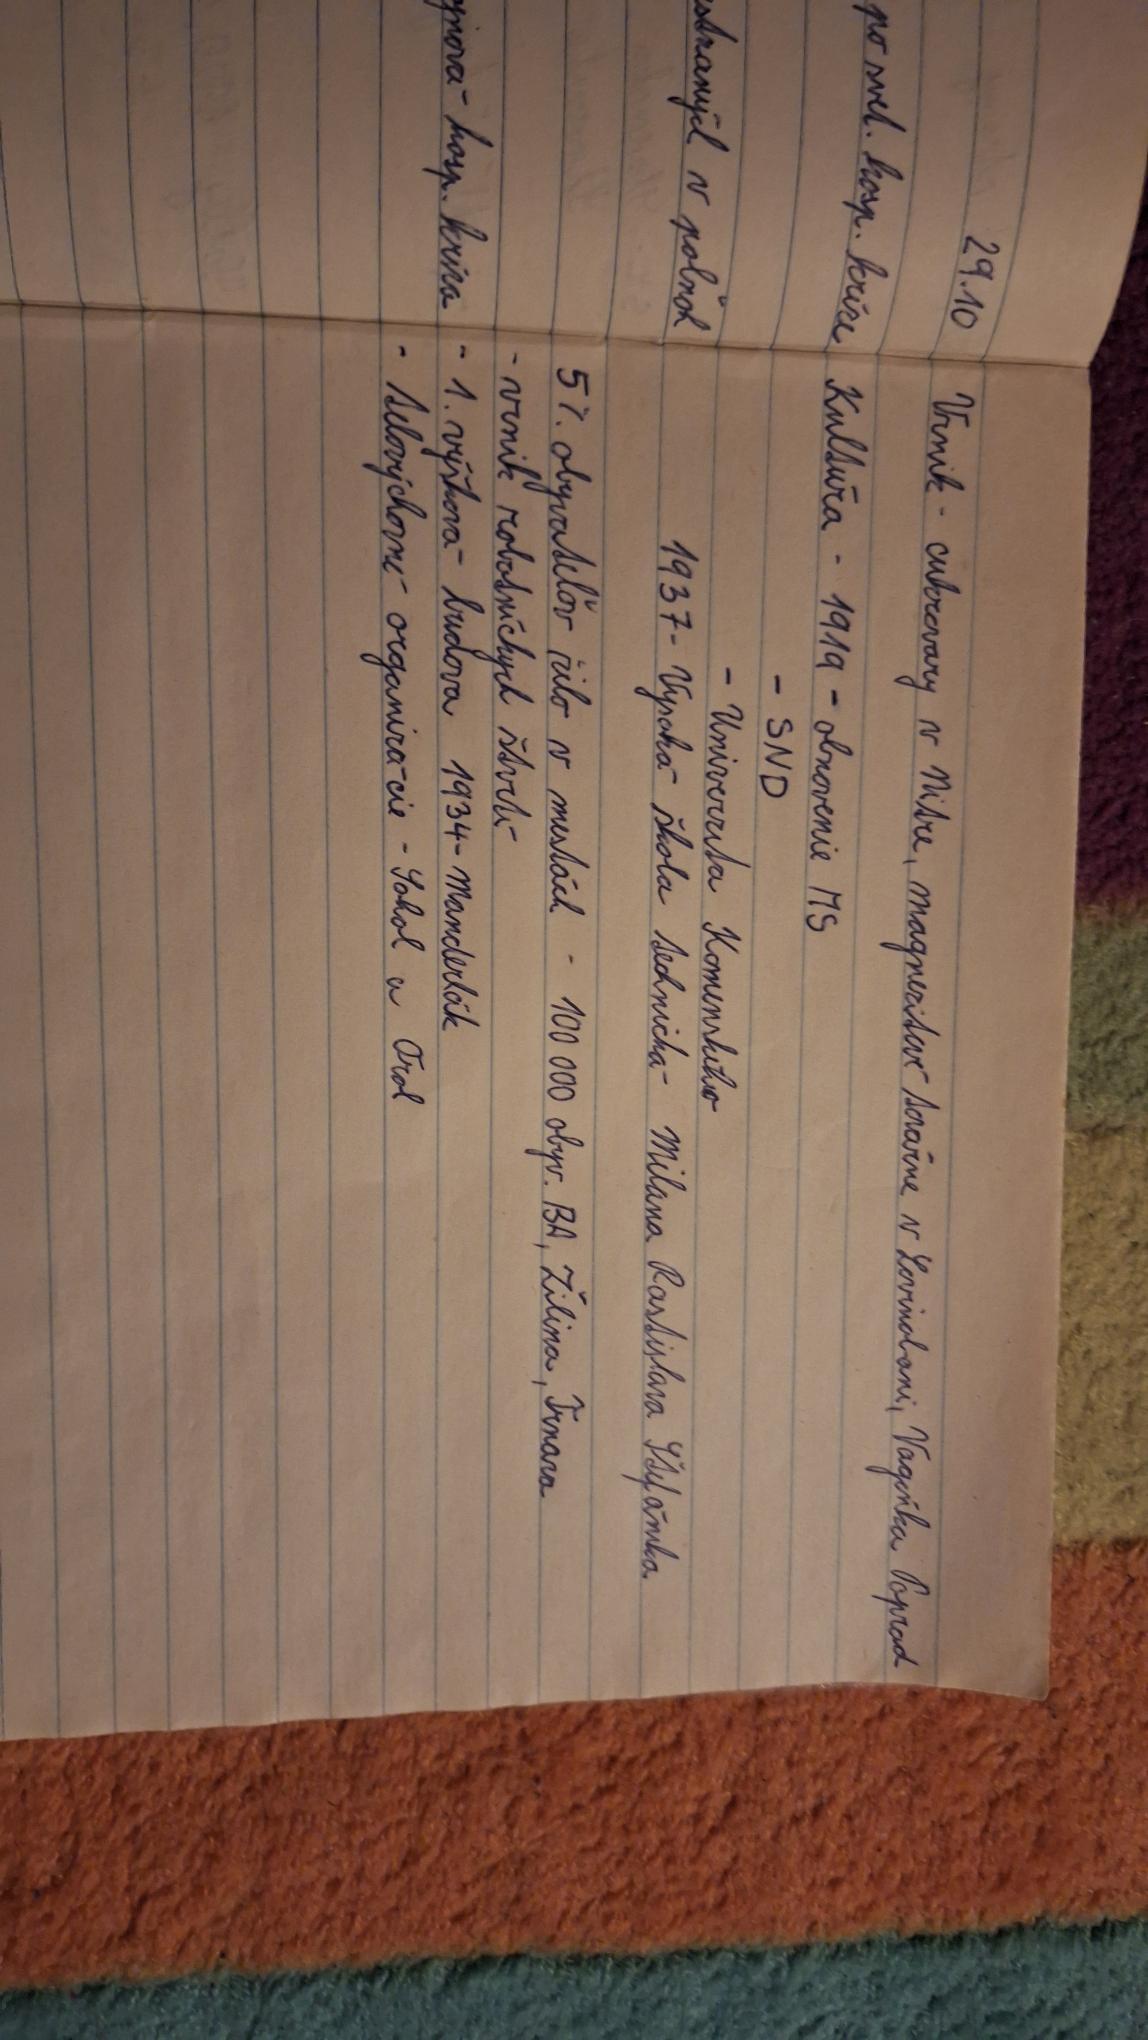 29.10
po svet. hosp. kríze
zamestnaných v poľnoh
hosp. kríza
Vznik - cukrovary v Nitre, magnezitové továrne v Lovinobani, Vagónka Poprad
Kultúra - 1919 - obnovenie MS
- SND
- Univerzita Komenského
1937 - Vysoká škola technická Milana Rastislava Štefánika
5%. obyvateľov žilo v mestách - 100 000 obyv. BA, Žilina, Trnava
- vznik robotníchych štvrtí
- 1. výšková budova 1934 - Manderlák
- telovýchovné organizácie - Sokol a Orol